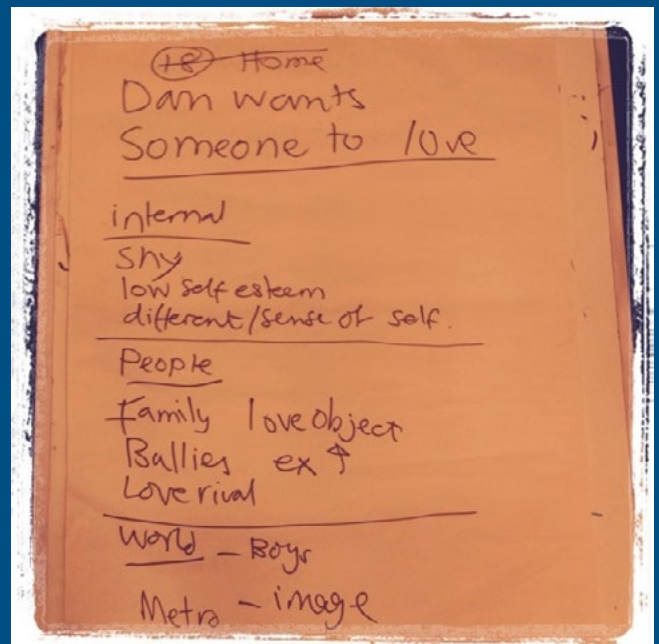 18 Home
Dan wants
Someone to love
internal
Shy
low self esteem
different/sense of self.
People
Family love object
Bullies ex ↑
Love rival
World - Boys
Metro - image